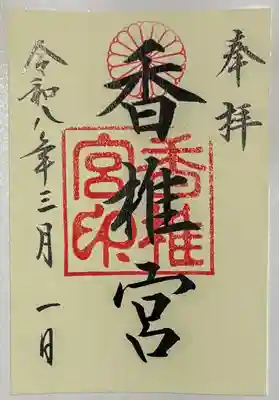 奉拝
香椎宮
香椎宮印
令和八年三月一日